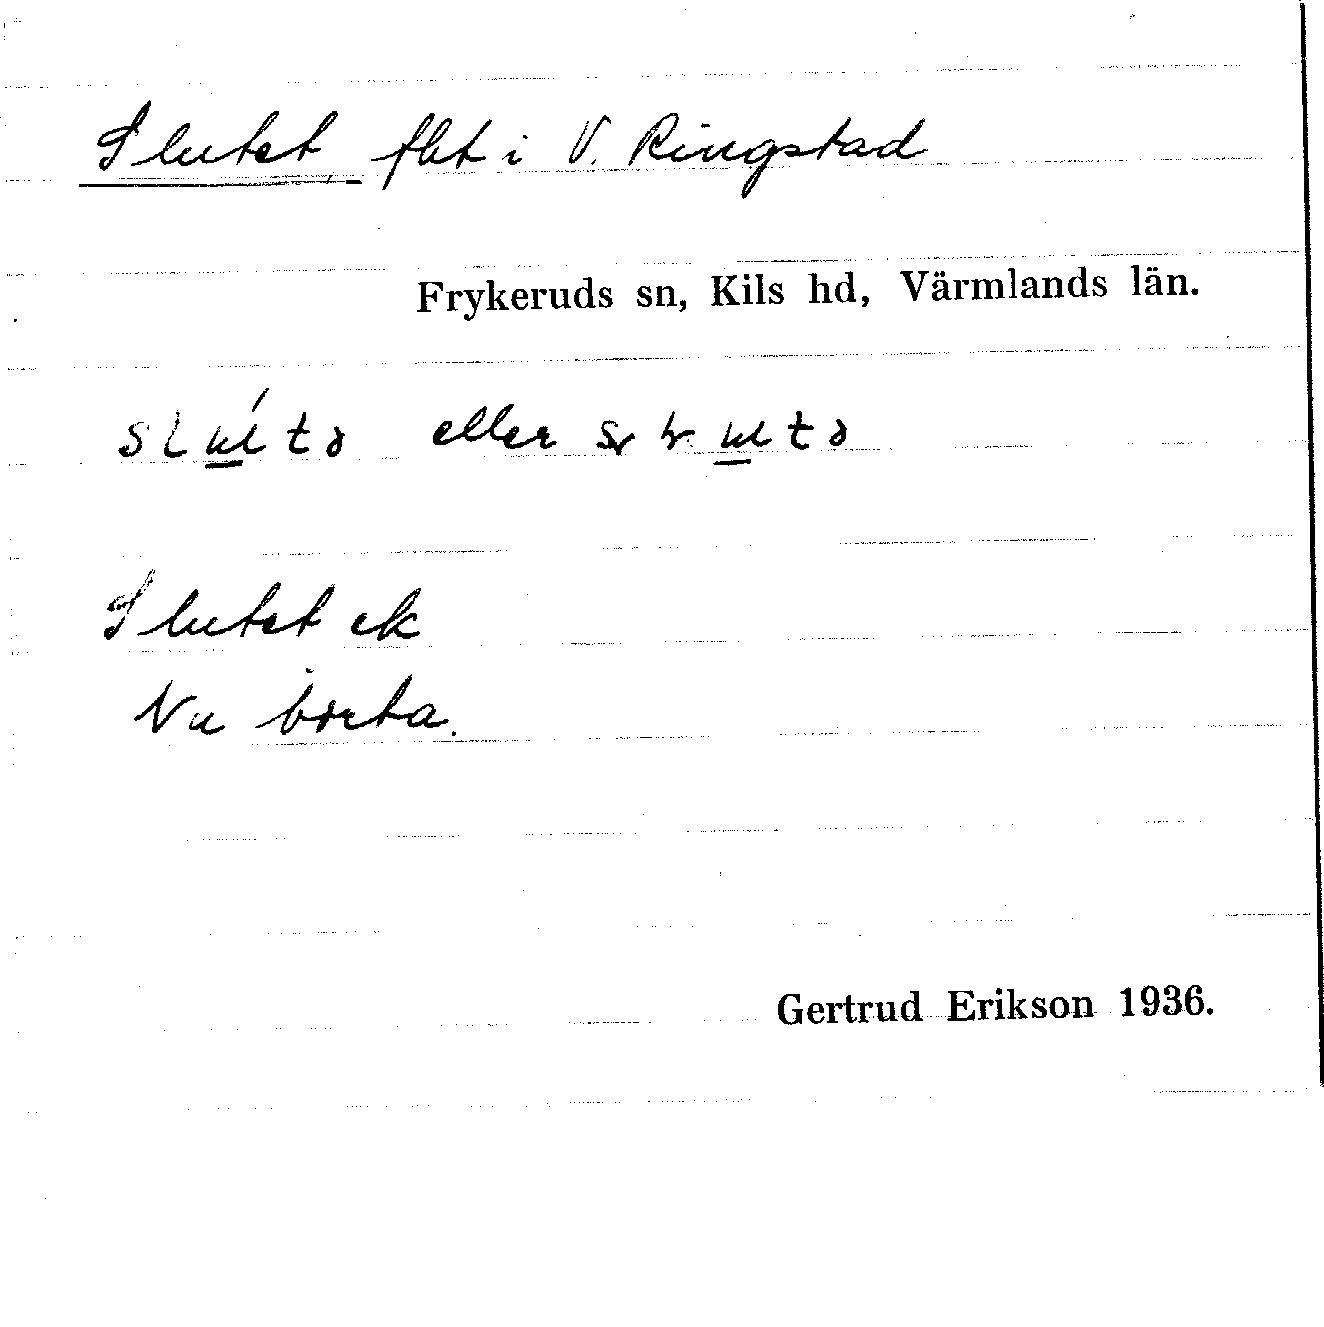 Slutet, fht i V. Ringstad
Frykeruds sn, Kils hd, Värmlands län.
eller
Slutet ek
Nu borta.
Gertrud Erikson 1936.